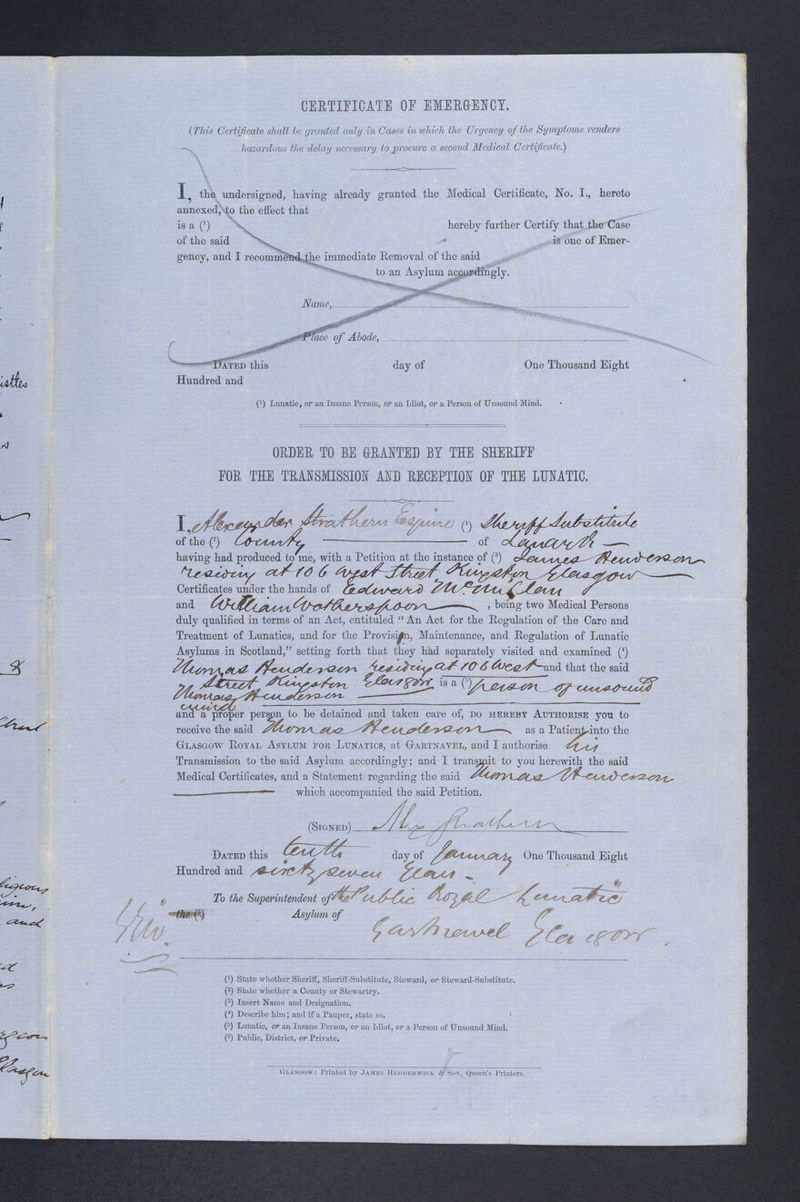 CERTIFICATE OF EMERGENCY.
(This Certificate shall be granted only in Cases in which the Urgency of the Symptoms renders
hazardous the delay necessary to procure a second Medical Certificate.)
I, the undersigned, having already granted the Medical Certificate, No. I., hereto
annexed, to the effect that
is a (¹) hereby further Certify that the Case
of the said is one of Emer-
gency, and I recommend the immediate Removal of the said
to an Asylum accordingly.
Name,
Place of Abode,
DATED this day of One Thousand Eight
Hundred and
(¹) Lunatic, or an Insane Person, or an Idiot, or a Person of Unsound Mind.
ORDER TO BE GRANTED BY THE SHERIFF
FOR THE TRANSMISSION AND RECEPTION OF THE LUNATIC.
I, Alexander Strathern Esquire (¹) Sheriff Substitute
of the (²) County of Lanark
having had produced to me, with a Petition at the instance of (³) James Henderson
residing at 106 West Street Kingston Glasgow
Certificates under the hands of Edward McMillan
and William Wotherspoon, being two Medical Persons
duly qualified in terms of an Act, entituled "An Act for the Regulation of the Care and
Treatment of Lunatics, and for the Provision, Maintenance, and Regulation of Lunatic
Asylums in Scotland," setting forth that they had separately visited and examined (⁴)
Thomas Henderson residing at 106 West and that the said
Street Kingston Glasgow is a (⁵) person of unsound
Thomas Henderson
mind
and a proper person to be detained and taken care of, DO HEREBY AUTHORISE you to
receive the said Thomas Henderson as a Patient into the
GLASGOW ROYAL ASYLUM FOR LUNATICS, at GARTNAVEL, and I authorise his
Transmission to the said Asylum accordingly; and I transmit to you herewith the said
Medical Certificates, and a Statement regarding the said Thomas Henderson
which accompanied the said Petition.
(SIGNED) Alex Strathern
DATED this tenth day of January One Thousand Eight
Hundred and sixty seven years
To the Superintendent of the Public Royal Lunatic
the (⁶) Asylum of
Gartnavel Glasgow.
(¹) State whether Sheriff, Sheriff-Substitute, Steward, or Steward-Substitute.
(²) State whether a County or Stewartry.
(³) Insert Name and Designation.
(⁴) Describe him; and if a Pauper, state so.
(⁵) Lunatic, or an Insane Person, or an Idiot, or a Person of Unsound Mind.
(⁶) Public, District, or Private.
GLASGOW: Printed by JAMES HEDDERWICK & SON, Queen's Printers.